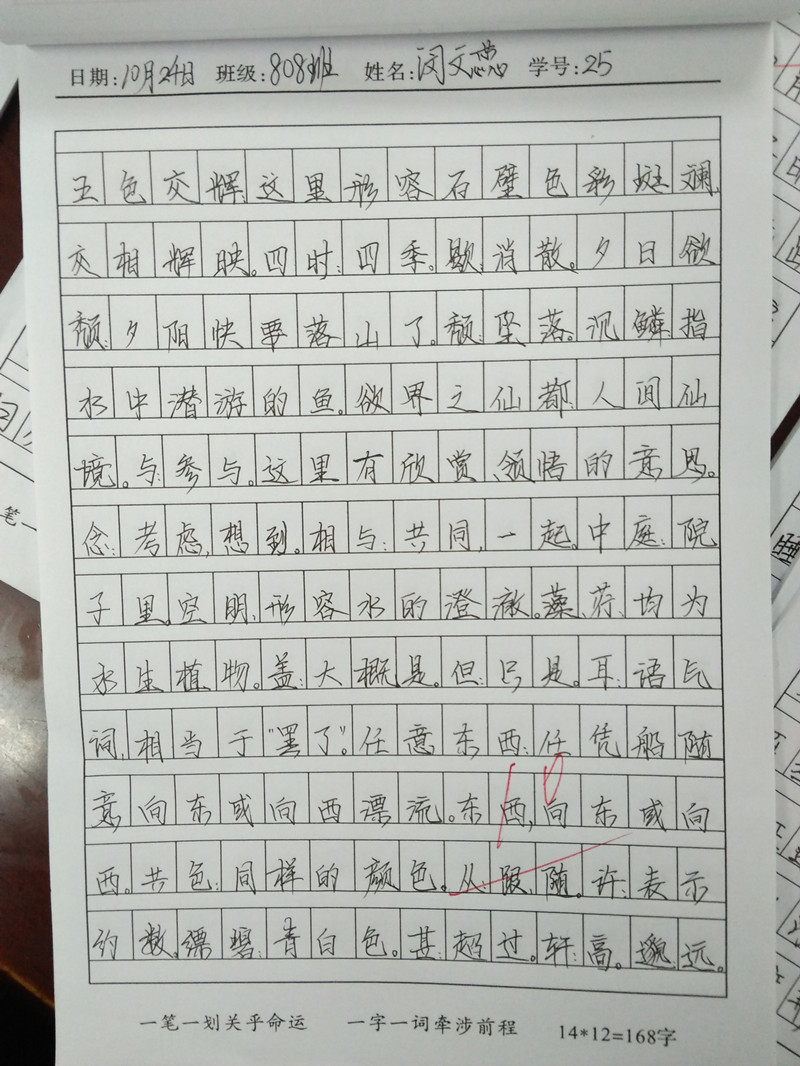 日期:10月24日 班级:808班 姓名:闵文蕊 学号:25
五色交辉:这里形容石壁色彩斑斓,
交相辉映。四时:四季。歇:消散。夕日欲
颓:夕阳快要落山了。颓:坠落。沉鳞:指
水中潜游的鱼。欲界之仙都:人间仙
境。与:参与。这里有欣赏、领悟的意思。
念:考虑,想到。相与:共同,一起。中庭:院
子里。空明:形容水的澄澈。藻、荇:均为
水生植物。盖:大概是。但:只是。耳:语气
词,相当于“罢了”。任意东西:任凭船随
意向东或向西漂流。东西,向东或向
西。共色:同样的颜色。从:跟随。许:表示
约数。缥碧:青白色。甚:超过。轩:高。邈:远。
一笔一划关乎命运 一字一词牵涉前程 14*12=168字
笔一